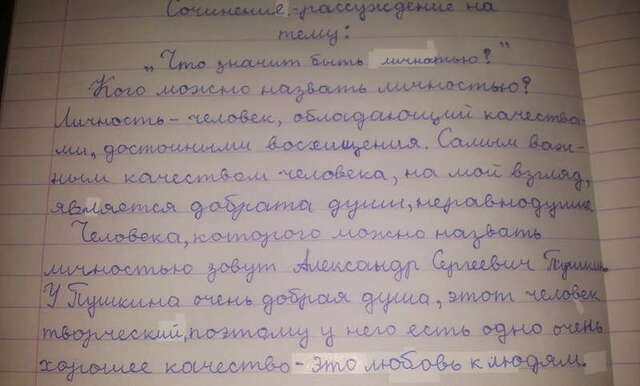 Сочинение-рассуждение на
тему:
„Что значит быть личностью?"
Кого можно назвать личностью?
Личность - человек, обладающий качества-
ми, достойными восхищения. Самым важ-
ным качеством человека, на мой взгляд,
является доброта души, неравнодушие
Человека, которого можно назвать
личностью зовут Александр Сергеевич Пушкин.
У Пушкина очень добрая душа, этот человек
творческий, поэтому у него есть одно очень
хорошее качество - это любовь к людям.